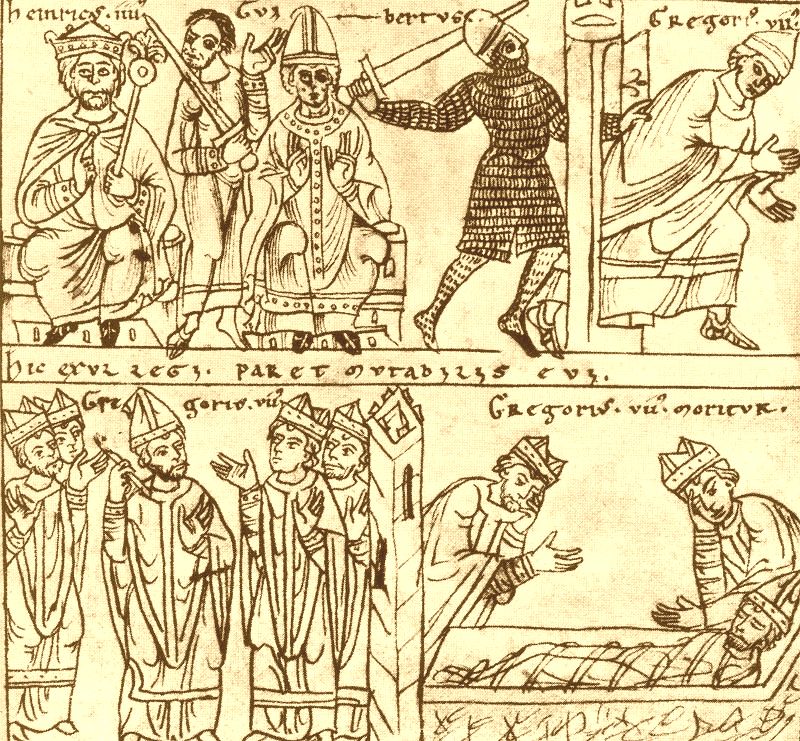 heinricus. iiii'
GVI bertus.
Gregori'. vii'
hic exul regi. paret mutabilis evi.
Gre goris. vii'
Gregori'. vii'. moritur.